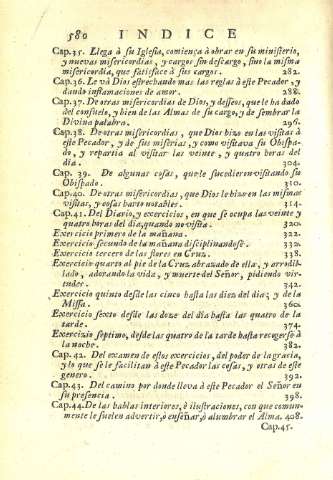 580 INDICE
Cap.35. Llega à su Iglesia, comiença à obrar en su ministerio,
y nuevas misericordias, y cargos sin descargo, sino la misma
misericordia, que satisface à sus cargos. 282.
Cap.36. Le và Dios estrechando mas las reglas à este Pecador, y
dando inflamaciones de amor. 288.
Cap.37. De otras misericordias de Dios, y desseos, que le ha dado
del consuelo, y bien de las Almas de su cargo, y de sembrar la
Divina palabra. 296.
Cap.38. De otras misericordias, que Dios hizo en las visitas à
este Pecador, y de sus miserias, y como visitava su Obispa-
do, y repartia al visitar las veinte, y quatro horas del
dia. 304.
Cap. 39. De algunas cosas, que le sucedieron visitando su
Obispado. 310.
Cap.40. De otras misericordias, que Dios le hizo en las mismas
visitas, y cosas harto notables. 314.
Cap.41. Del Diario, y exercicios, en que se ocupa las veinte y
quatro horas del dia, quando no visita. 320.
Exercicio primero de la mañana. 322.
Exercicio segundo de la mañana disciplinandose. 332.
Exercicio tercero de las flores en Cruz. 338.
Exercicio quarto al pie de la Cruz abrazado de ella, y arrodi-
lado, adorando la vida, y muerte del Señor, pidiendo vir-
tudes. 342.
Exercicio quinto desde las cinco hasta las diez del dia; y de la
Missa. 360.
Exercicio sexto desde las doze del dia hasta las quatro de la
tarde. 374.
Exercizio septimo, desde las quatro de la tarde hasta recogerse à
la noche. 382.
Cap. 42. Del examen de estos exercicios, del poder de la gracia,
y lo que se le facilitan à este Pecador las cosas, y otras de este
genero. 392.
Cap.43. Del camino por donde lleva à este Pecador el Señor en
su presencia. 398.
Cap.44. De las hablas interiores, è ilustraciones, con que comun-
mente le suelen advertir, ò enseñar, ò alumbrar el Alma. 408.
Cap.45.